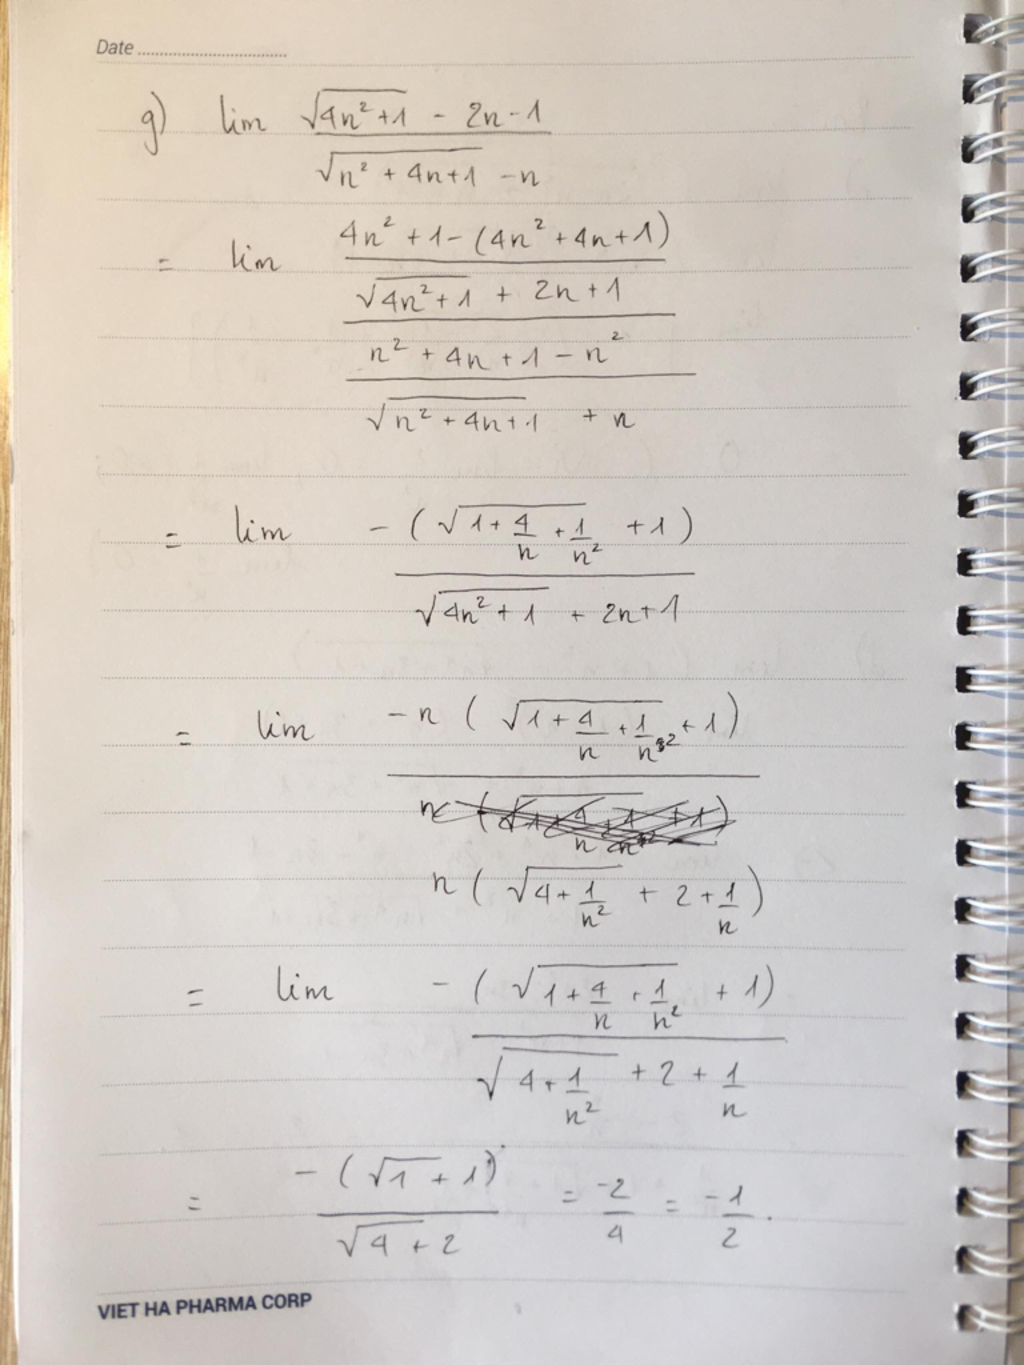 Date
g) lim √(4n²+1) - 2n - 1
√(n² + 4n+1) - n
= lim 4n² + 1 - (4n² + 4n + 1)
√(4n²+1) + 2n + 1
n² + 4n + 1 - n²
√(n² + 4n+1) + n
= lim - (√(1 + 4/n + 1/n²) + 1)
√(4n² + 1) + 2n + 1
= lim - n (√(1 + 4/n + 1/n²) + 1)
n (√(4 + 1/n²) + 2 + 1/n)
= lim - (√(1 + 4/n + 1/n²) + 1)
√(4 + 1/n²) + 2 + 1/n
= - (√1 + 1) = -2/4 = -1/2.
√4 + 2
VIET HA PHARMA CORP